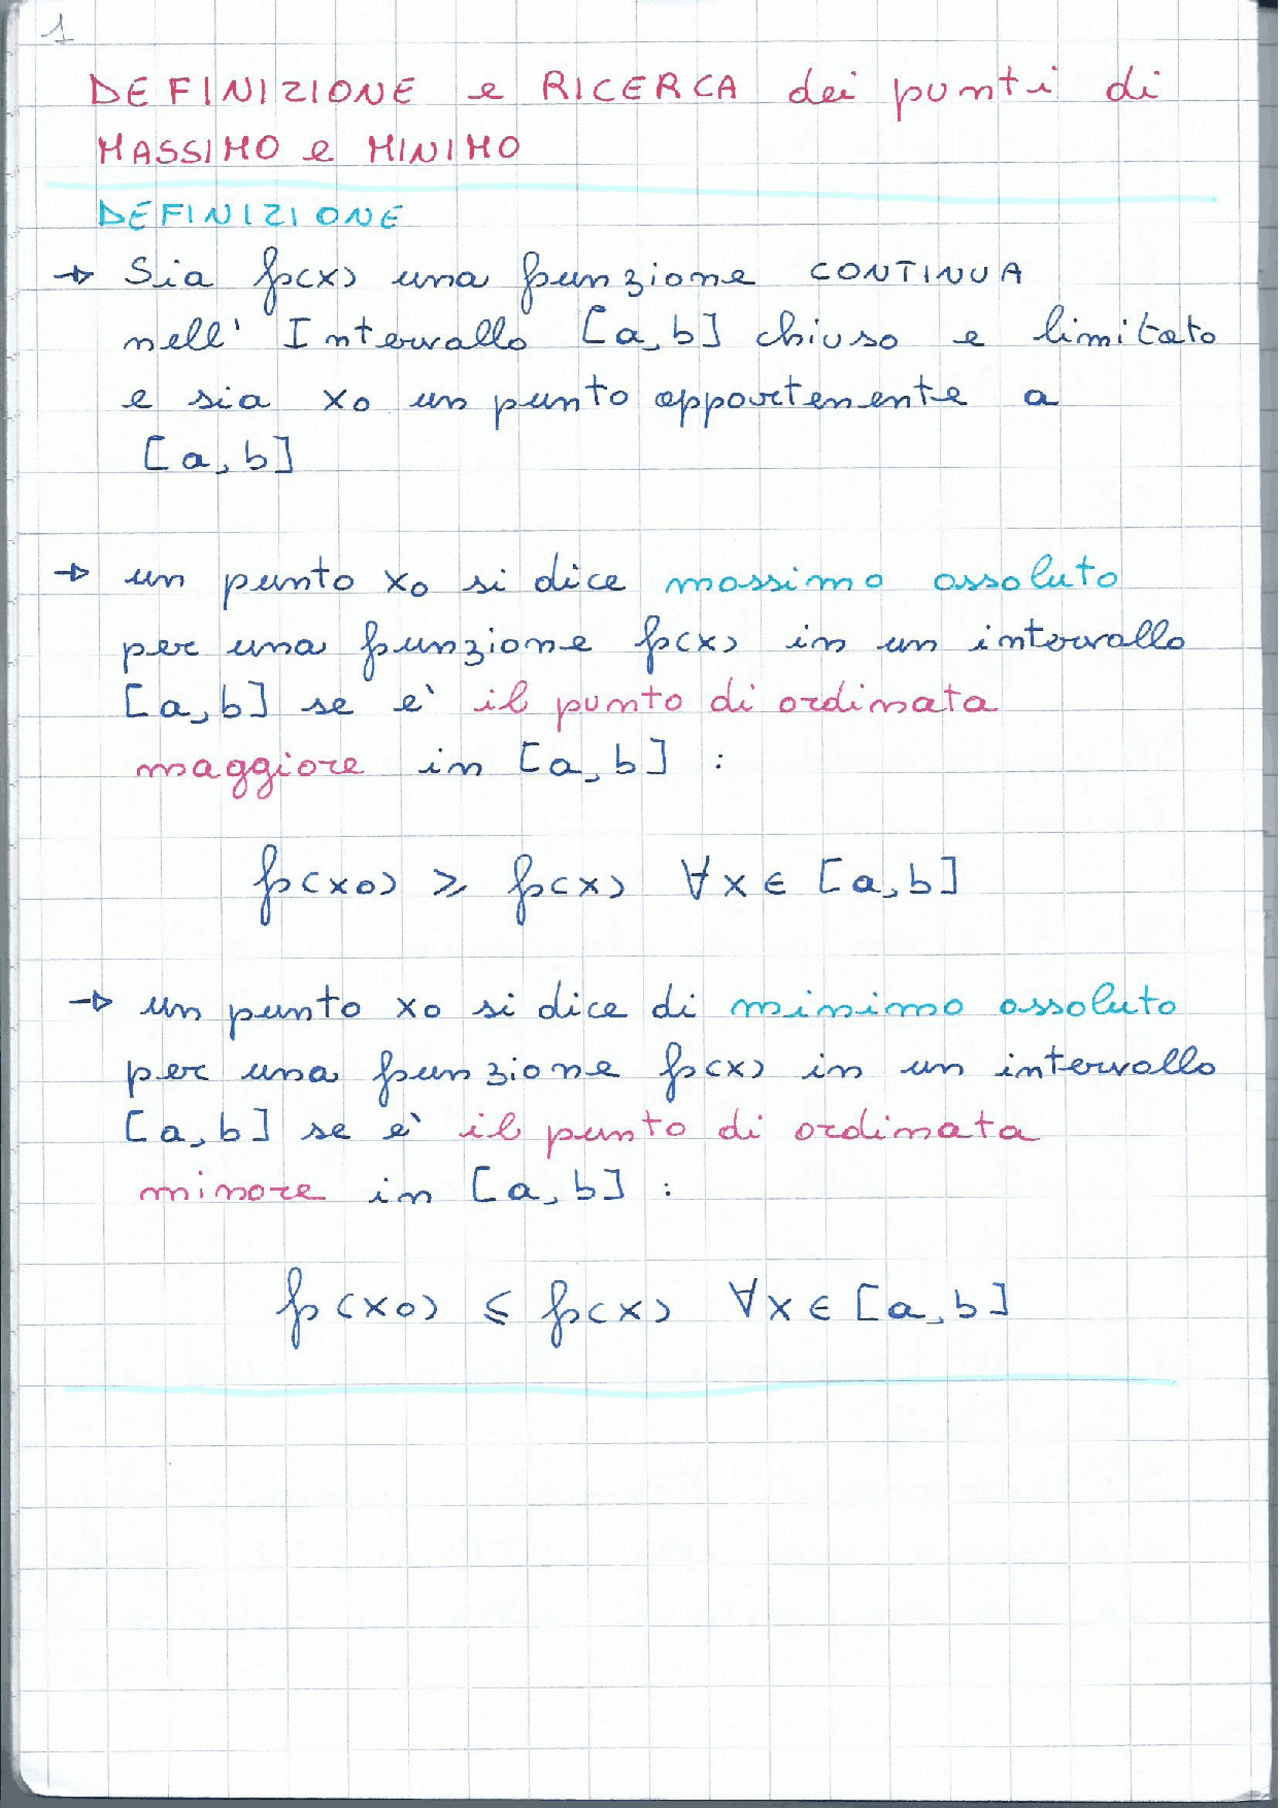 1
DEFINIZIONE e RICERCA dei punti di
MASSIMO e MINIMO
DEFINIZIONE
→ Sia f(x) una funzione CONTINUA
nell' Intervallo [a,b] chiuso e limitato
e sia x0 un punto appartenente a
[a,b]
→ un punto x0 si dice massimo assoluto
per una funzione f(x) in un intervallo
[a,b] se e' il punto di ordinata
maggiore in [a,b] :
f(x0) ⩾ f(x) ∀x ∈ [a,b]
→ un punto x0 si dice di minimo assoluto
per una funzione f(x) in un intervallo
[a,b] se e' il punto di ordinata
minore in [a,b] :
f(x0) ⩽ f(x) ∀x ∈ [a,b]